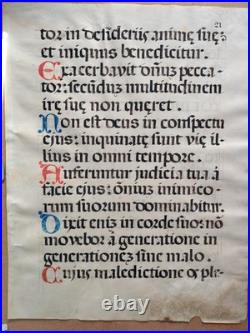 21
tor in desideriis anime suę:
et iniquus benedicitur.
Exacerbavit dōnus pecca-
tor: secūdum multitudinem
irę suę non quęret.
Non est deus in conspectu
ejus: inquinatę sunt vię il-
lius in omni tempore.
Auferuntur judicia tua à
facie ejus: ōnium inimico-
rum suorum dominabitur.
Dixit eniz in corde suo: nō
movebor à generatione in
generationez sine malo.
Cujus maledictione os ple-